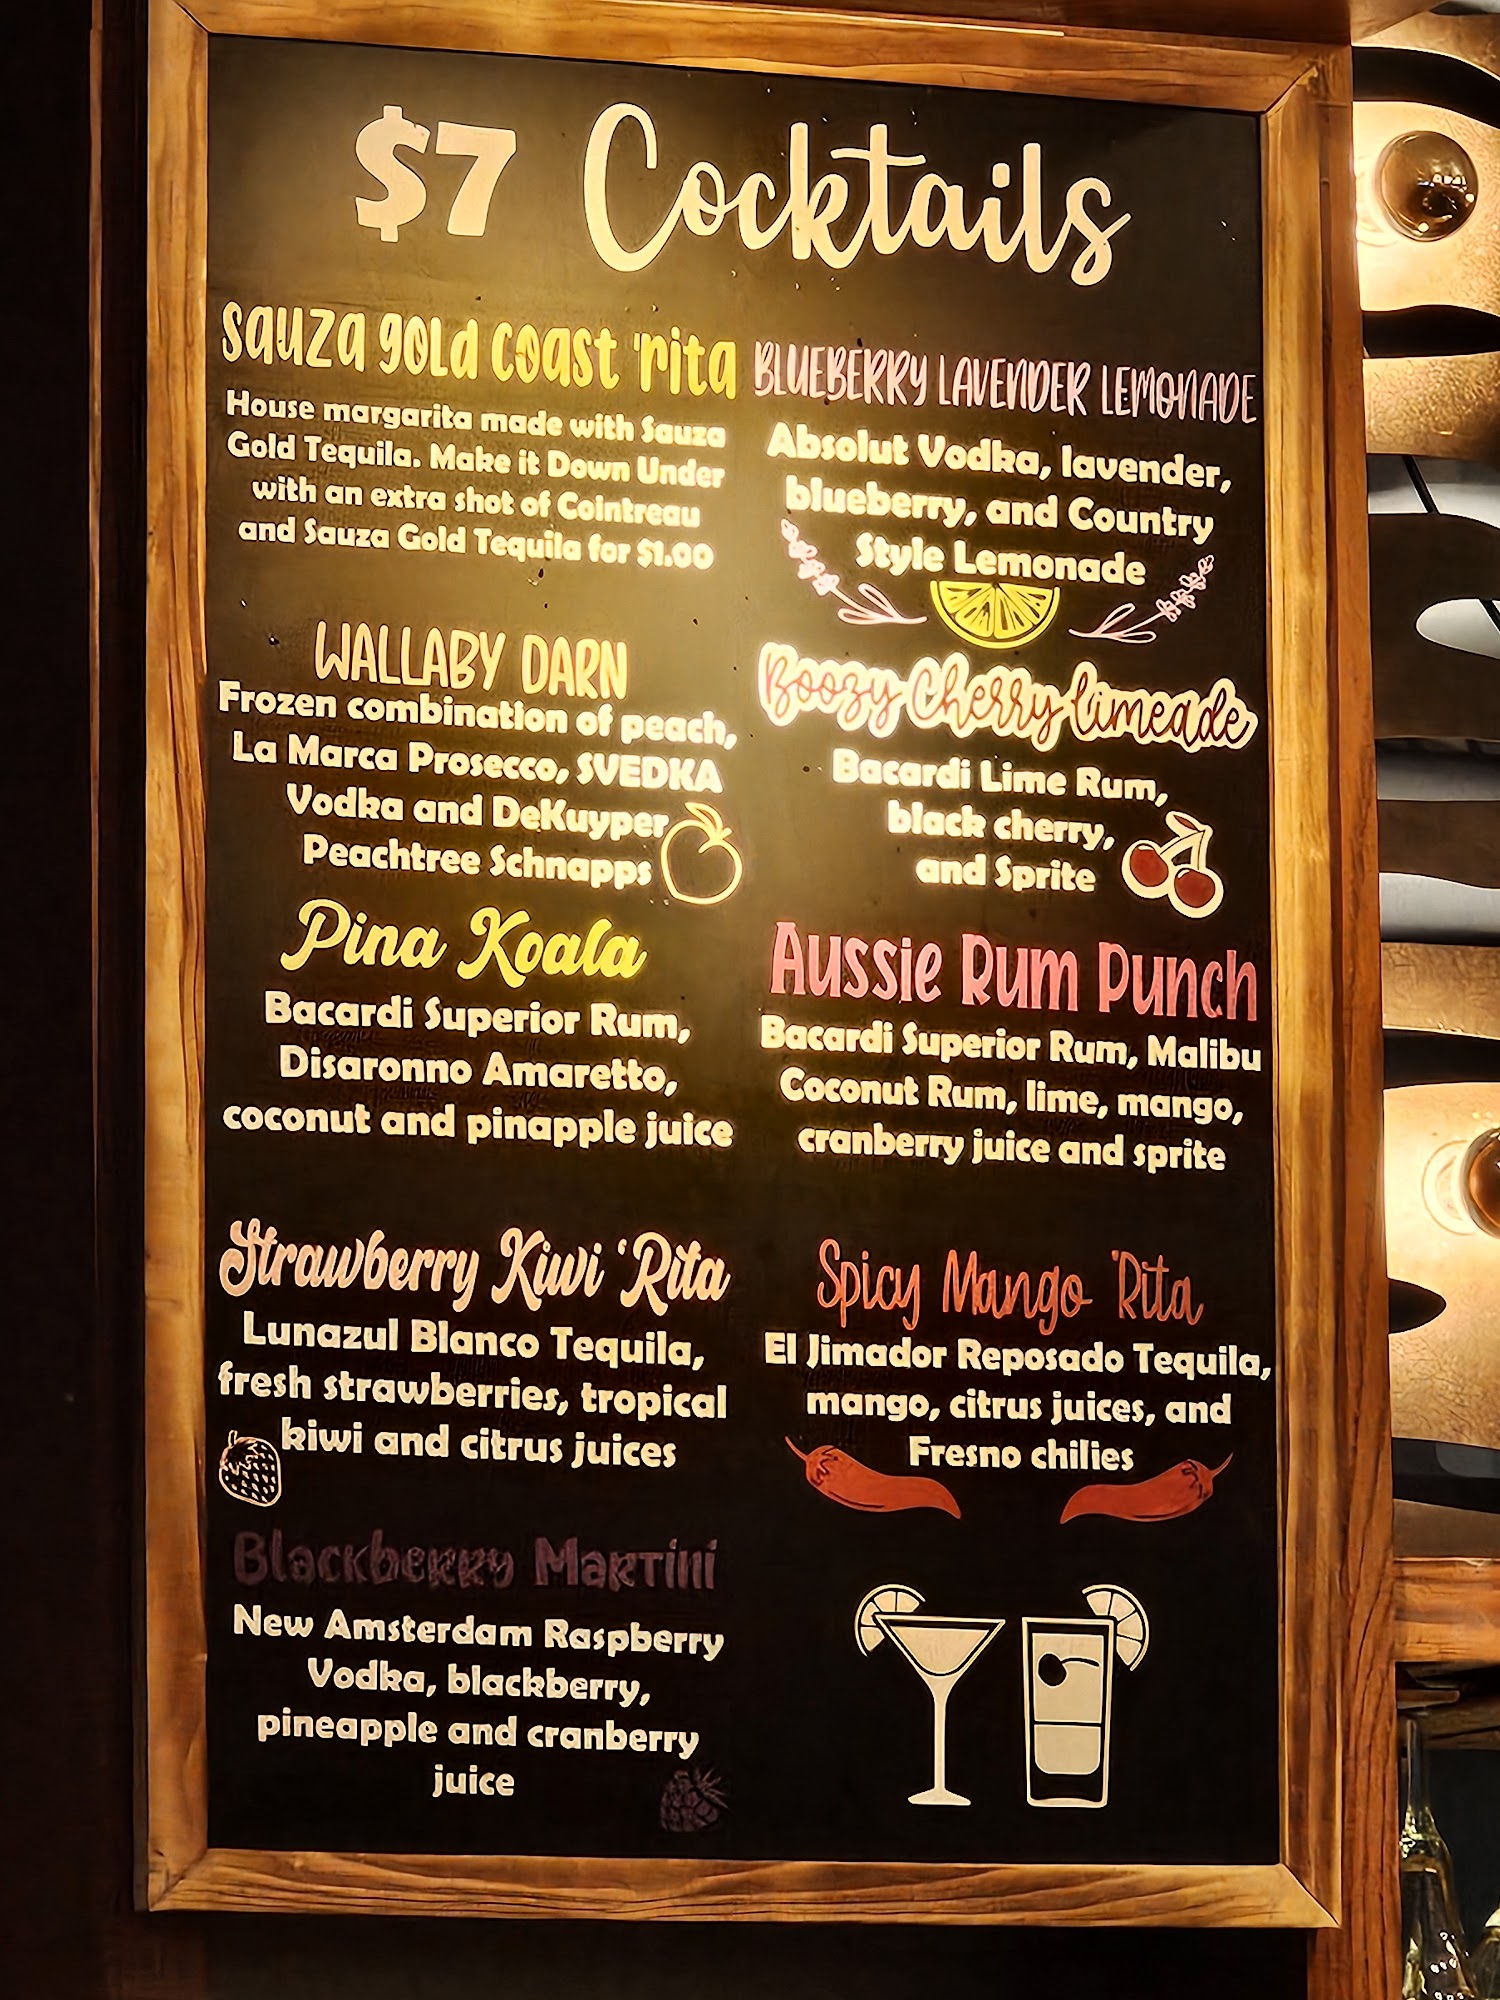 $7 Cocktails
Sauza Gold Coast 'Rita
House margarita made with Sauza
Gold Tequila. Make it Down Under
with an extra shot of Cointreau
and Sauza Gold Tequila for $1.00
WALLABY DARN
Frozen combination of peach,
La Marca Prosecco, SVEDKA
Vodka and DeKuyper
Peachtree Schnapps
Pina Koala
Bacardi Superior Rum,
Disaronno Amaretto,
coconut and pinapple juice
Strawberry Kiwi 'Rita
Lunazul Blanco Tequila,
fresh strawberries, tropical
kiwi and citrus juices
Blackberry Martini
New Amsterdam Raspberry
Vodka, blackberry,
pineapple and cranberry
juice
BLUEBERRY LAVENDER LEMONADE
Absolut Vodka, lavender,
blueberry, and Country
Style Lemonade
Boozy Cherry Limeade
Bacardi Lime Rum,
black cherry,
and Sprite
Aussie Rum Punch
Bacardi Superior Rum, Malibu
Coconut Rum, lime, mango,
cranberry juice and sprite
Spicy Mango 'Rita
El Jimador Reposado Tequila,
mango, citrus juices, and
Fresno chilies